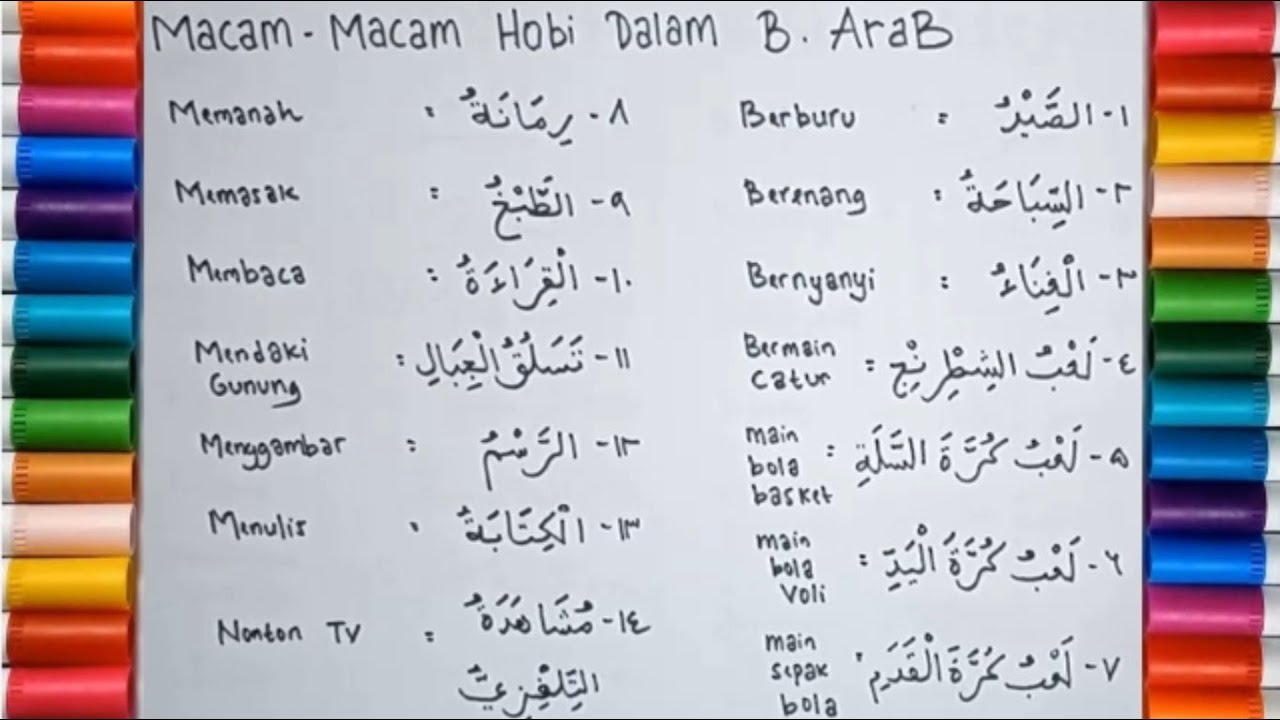 Macam-Macam Hobi Dalam B. Arab
١- الصَّيْدُ = Berburu
٢- السِّبَاحَةُ : Berenang
٣- الْغِنَاءُ : Bernyanyi
٤- لَعْبُ الشِطْرِنْجِ : Bermain
catur
٥- لَعْبُ كُرَّةَ السَّلَةِ : main
bola
basket
٦- لَعْبُ كُرَّةَ الْيَدِّ : main
bola
voli
٧- لَعْبُ كُرَّةَ الْقَدَمِ : main
sepak
bola
٨- رِمَانَةُ : Memanah
٩- الطَّبْخُ : Memasak
١٠- الْقِرَاءَةُ : Membaca
١١- تَسَلُقُ الْجِبَالِ : Mendaki
Gunung
١٢- الرَّسْمُ : Menggambar
١٣- الْكِتَابَةُ : Menulis
١٤- مُشَاهَدَةُ = Nonton TV
التِّلفِزِيُّ